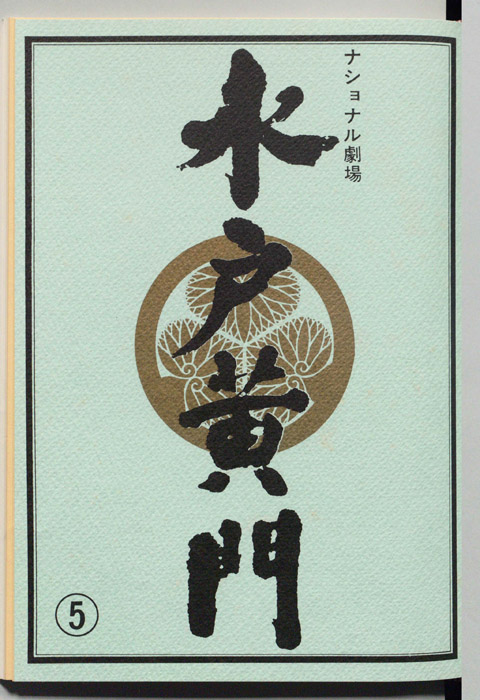 ナショナル劇場
水戸黄門
⑤